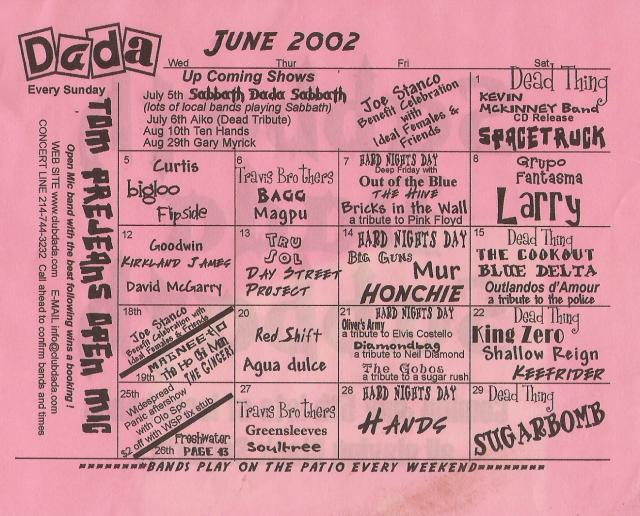 Dada
JUNE 2002
Wed Thur Fri Sat
Every Sunday
TOM PREJEANS OPEN MIC
Open Mic band with the best following wins a booking !
WEB SITE www.clubdada.com E-MAIL info@clubdada.com
CONCERT LINE 214-744-3232 Call ahead to confirm bands and times
Up Coming Shows
July 5th Sabbath Dada Sabbath
(lots of local bands playing Sabbath)
July 6th Aiko (Dead Tribute)
Aug 10th Ten Hands
Aug 29th Gary Myrick
Joe Stanco
Benefit Celebration
with
Ideal Females &
Friends
1 Dead Thing
KEVIN
MCKINNEY Band
CD Release
SPACETRUCK
5 Curtis
bigloo
Fipside
6
Travis Brothers
BAGG
Magpu
7 HARD NIGHTS DAY
Deep Friday with
Out of the Blue
THE HIVE
Bricks in the Wall
a tribute to Pink Floyd
8 Grupo
Fantasma
Larry
12
Goodwin
KIRKLAND JAMES
David McGarry
13 TRU
SOL
DAY STREET
PROJECT
14 HARD NIGHTS DAY
BIG GUNS
Mur
HONCHIE
15 Dead Thing
THE COOKOUT
BLUE DELTA
Outlandos d'Amour
a tribute to the police
18th
Joe Stanco
Benefit Celebration with
Ideal Females & Friends
MAINEETO
Ho Ho Chi Min
THE GINGERS
19th
20
Red Shift
Agua dulce
21 HARD NIGHTS DAY
Oliver's Army
a tribute to Elvis Costello
Diamondbag
a tribute to Neil Diamond
The Gobos
a tribute to a sugar rush
22 Dead Thing
King Zero
Shallow Reign
KEEFRIDER
25th
Widespread
Panic aftershow
with Olo Spo
$2 off with WSP tix stub
Freshwater
26th PAGE 43
27
Travis Brothers
Greensleeves
Soultree
28 HARD NIGHTS DAY
HANDS
29 Dead Thing
SUGARBOMB
BANDS PLAY ON THE PATIO EVERY WEEKEND